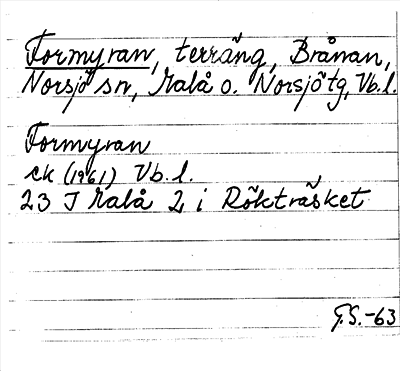 Formyran, terräng, Brånan,
Norsjö sn, Malå o. Norsjö tg, Vb.l.
Formyran
ek (1961) Vb.l.
23 J Malå 2 i Rökträsket
G.S.-63